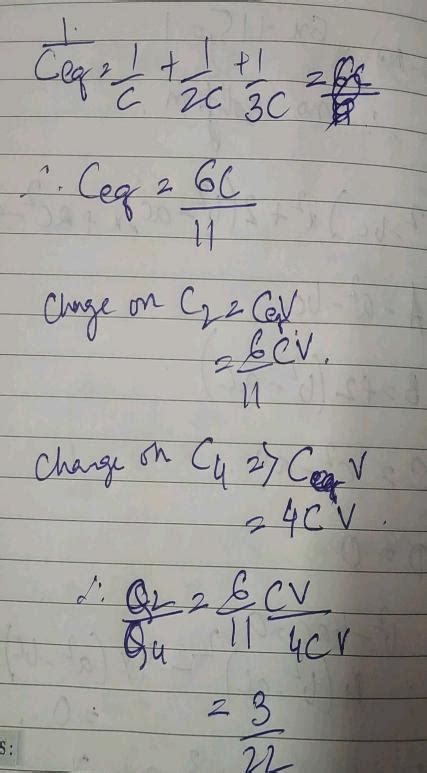 1/Ceq = 1/C + 1/2C + 1/3C =
∴ Ceq = 6C/11
Charge on C₂ = CeqV
= 6/11 CV.
Charge on C₄ => Ceq V
= 4CV.
∴ Q₂/Q₄ = 6/11 CV/4CV
= 3/22
S: